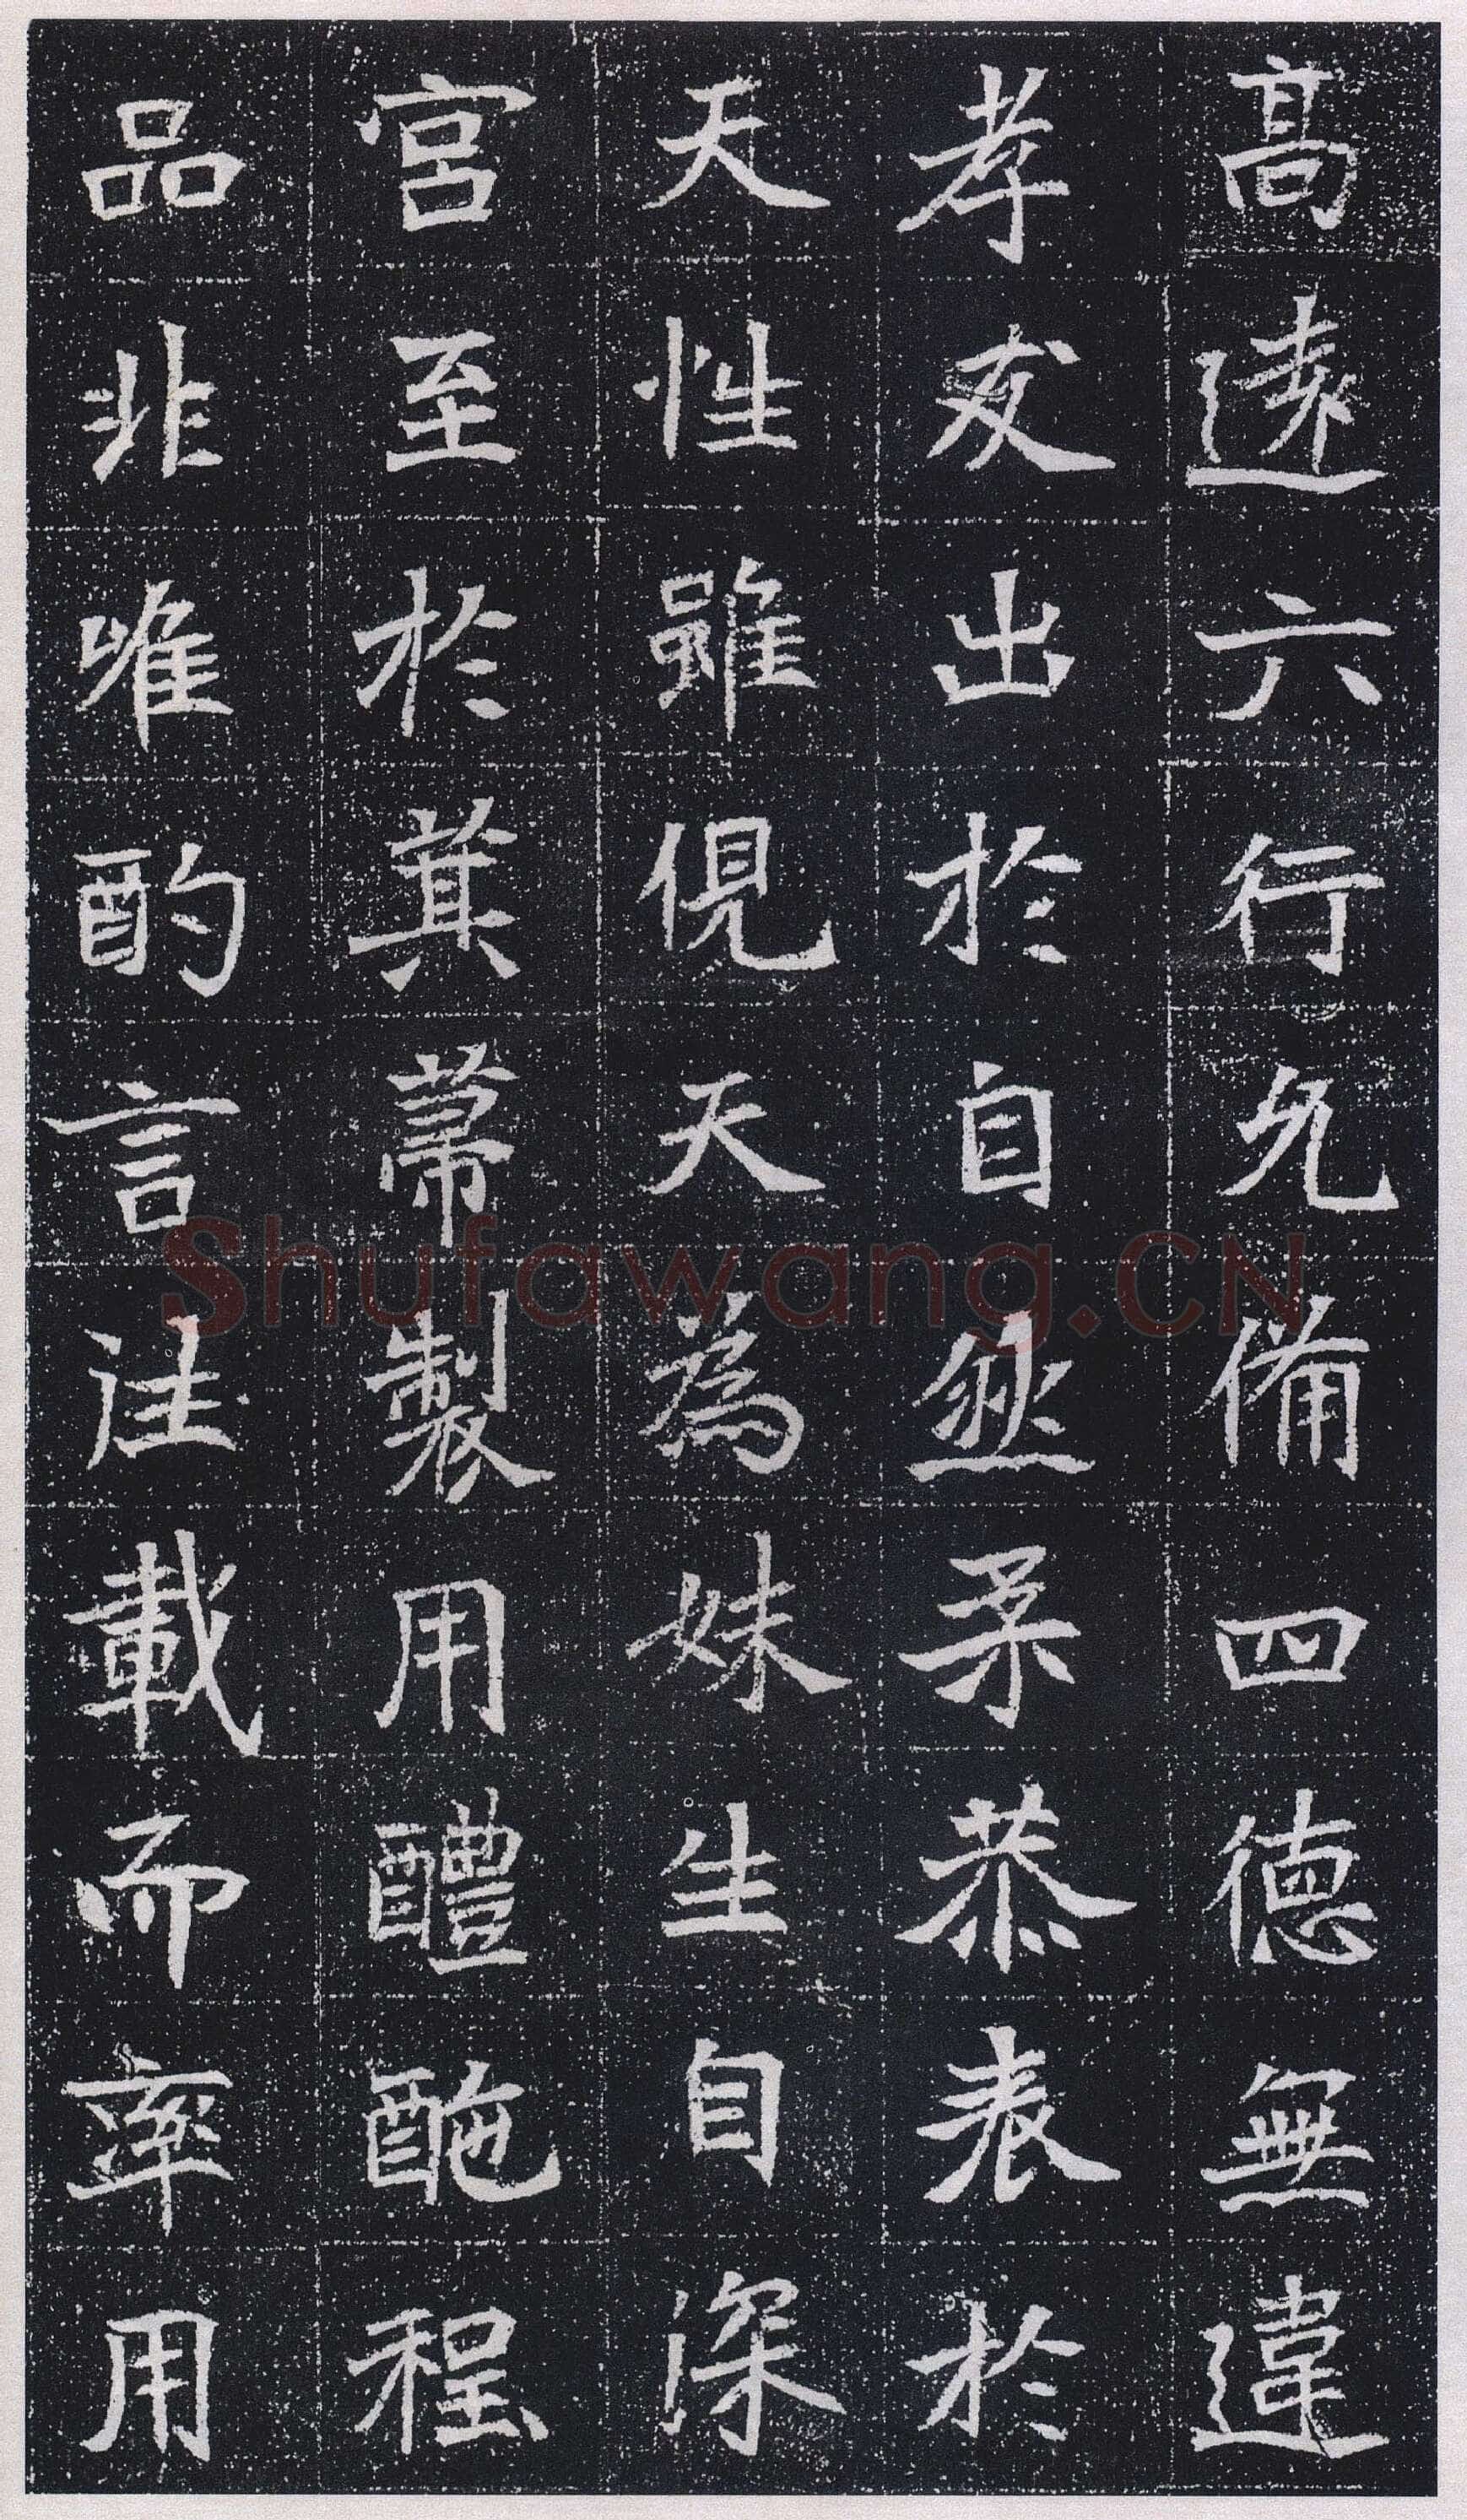 高遠六行允備四德無違
孝友出於自然柔恭表於
天性雖俔天為妹生自深
宮至於箕帚製用醴酏程
品非唯酌言往載而率用
Shufawang.CN